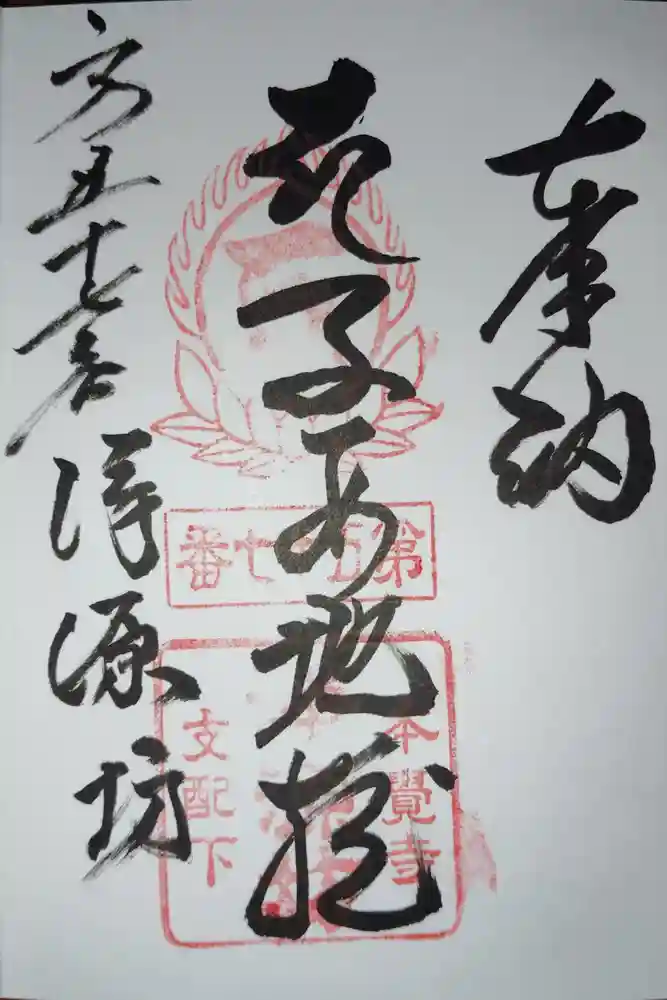 奉納
花子安地蔵
第五十七番
浄源坊
第五十七番
本覺寺
支配下